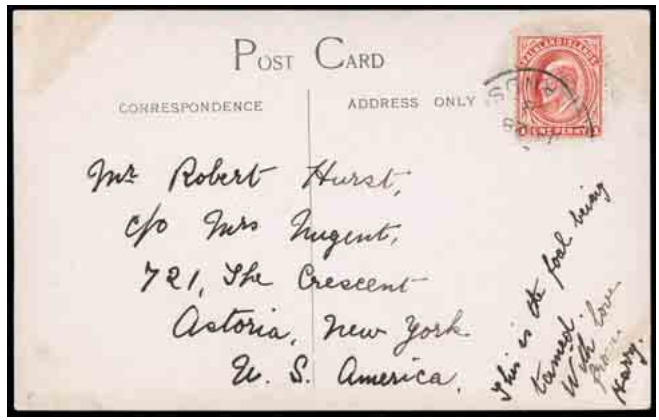 POST CARD
CORRESPONDENCE
ADDRESS ONLY
FALKLAND ISLANDS
ONE PENNY
Mr Robert Hurst,
c/o Mrs Nugent,
721, The Crescent
Astoria, New York
U. S. America.
This is the foal being
tamed.
With love
from
Harry.